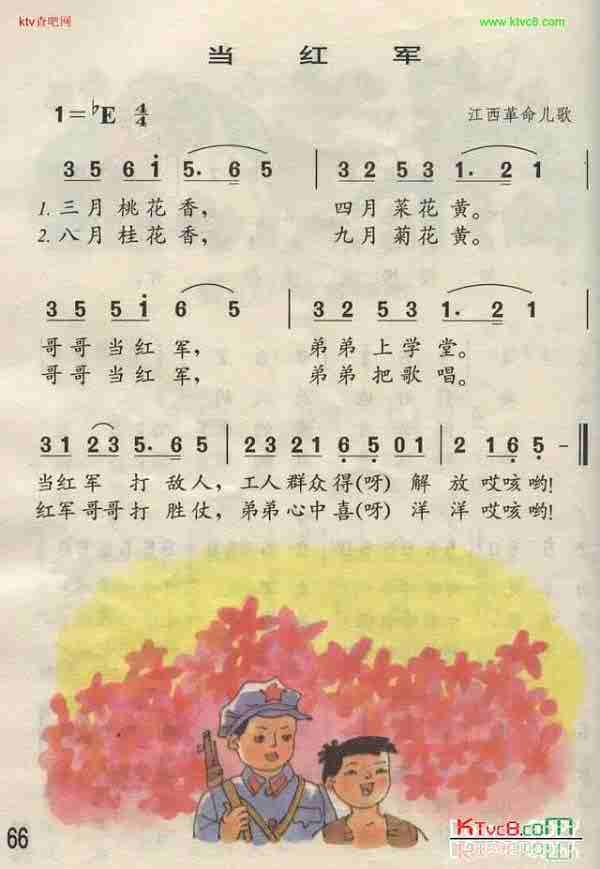 ktv查吧网
www.ktvc8.com
当红军
1=♭E 4/4
江西革命儿歌
3 5 6 i 5· 6 5 | 3 2 5 3 1· 2 1 |
1. 三月桃花香， 四月菜花黄。
2. 八月桂花香， 九月菊花黄。
3 5 5 i 6 5 | 3 2 5 3 1· 2 1 |
哥哥当红军， 弟弟上学堂。
哥哥当红军， 弟弟把歌唱。
3 1 2 3 5· 6 5 | 2 3 2 1 6 5 0 1 | 2 1 6 5 - ‖
当红军 打敌人，工人群众得(呀) 解放哎咳哟!
红军哥哥打胜仗，弟弟心中喜(呀) 洋洋哎咳哟!
66
KTvc8.com